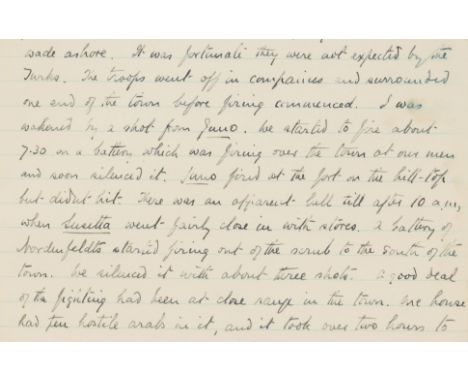 wade ashore. It was fortunate they were not expected by the
Turks. The troops went off in compainies and surrounded
one end of the town before firing commenced. I was
wakened by a shot from Juno. We started to fire about
7.30 on a battery which was firing over the town at our men
and soon silenced it. Juno fired at the fort on the hill-top
but didn't hit. There was an apparent lull till after 10 a.m,
when Susetta went fairly close in with stores. A battery of
Nordenfeldts started firing out of the scrub to the South of the
town. We silenced it with about three shots. A good deal
of the fighting had been at close range in the town. One house
had ten hostile arabs in it, and it took over two hours to